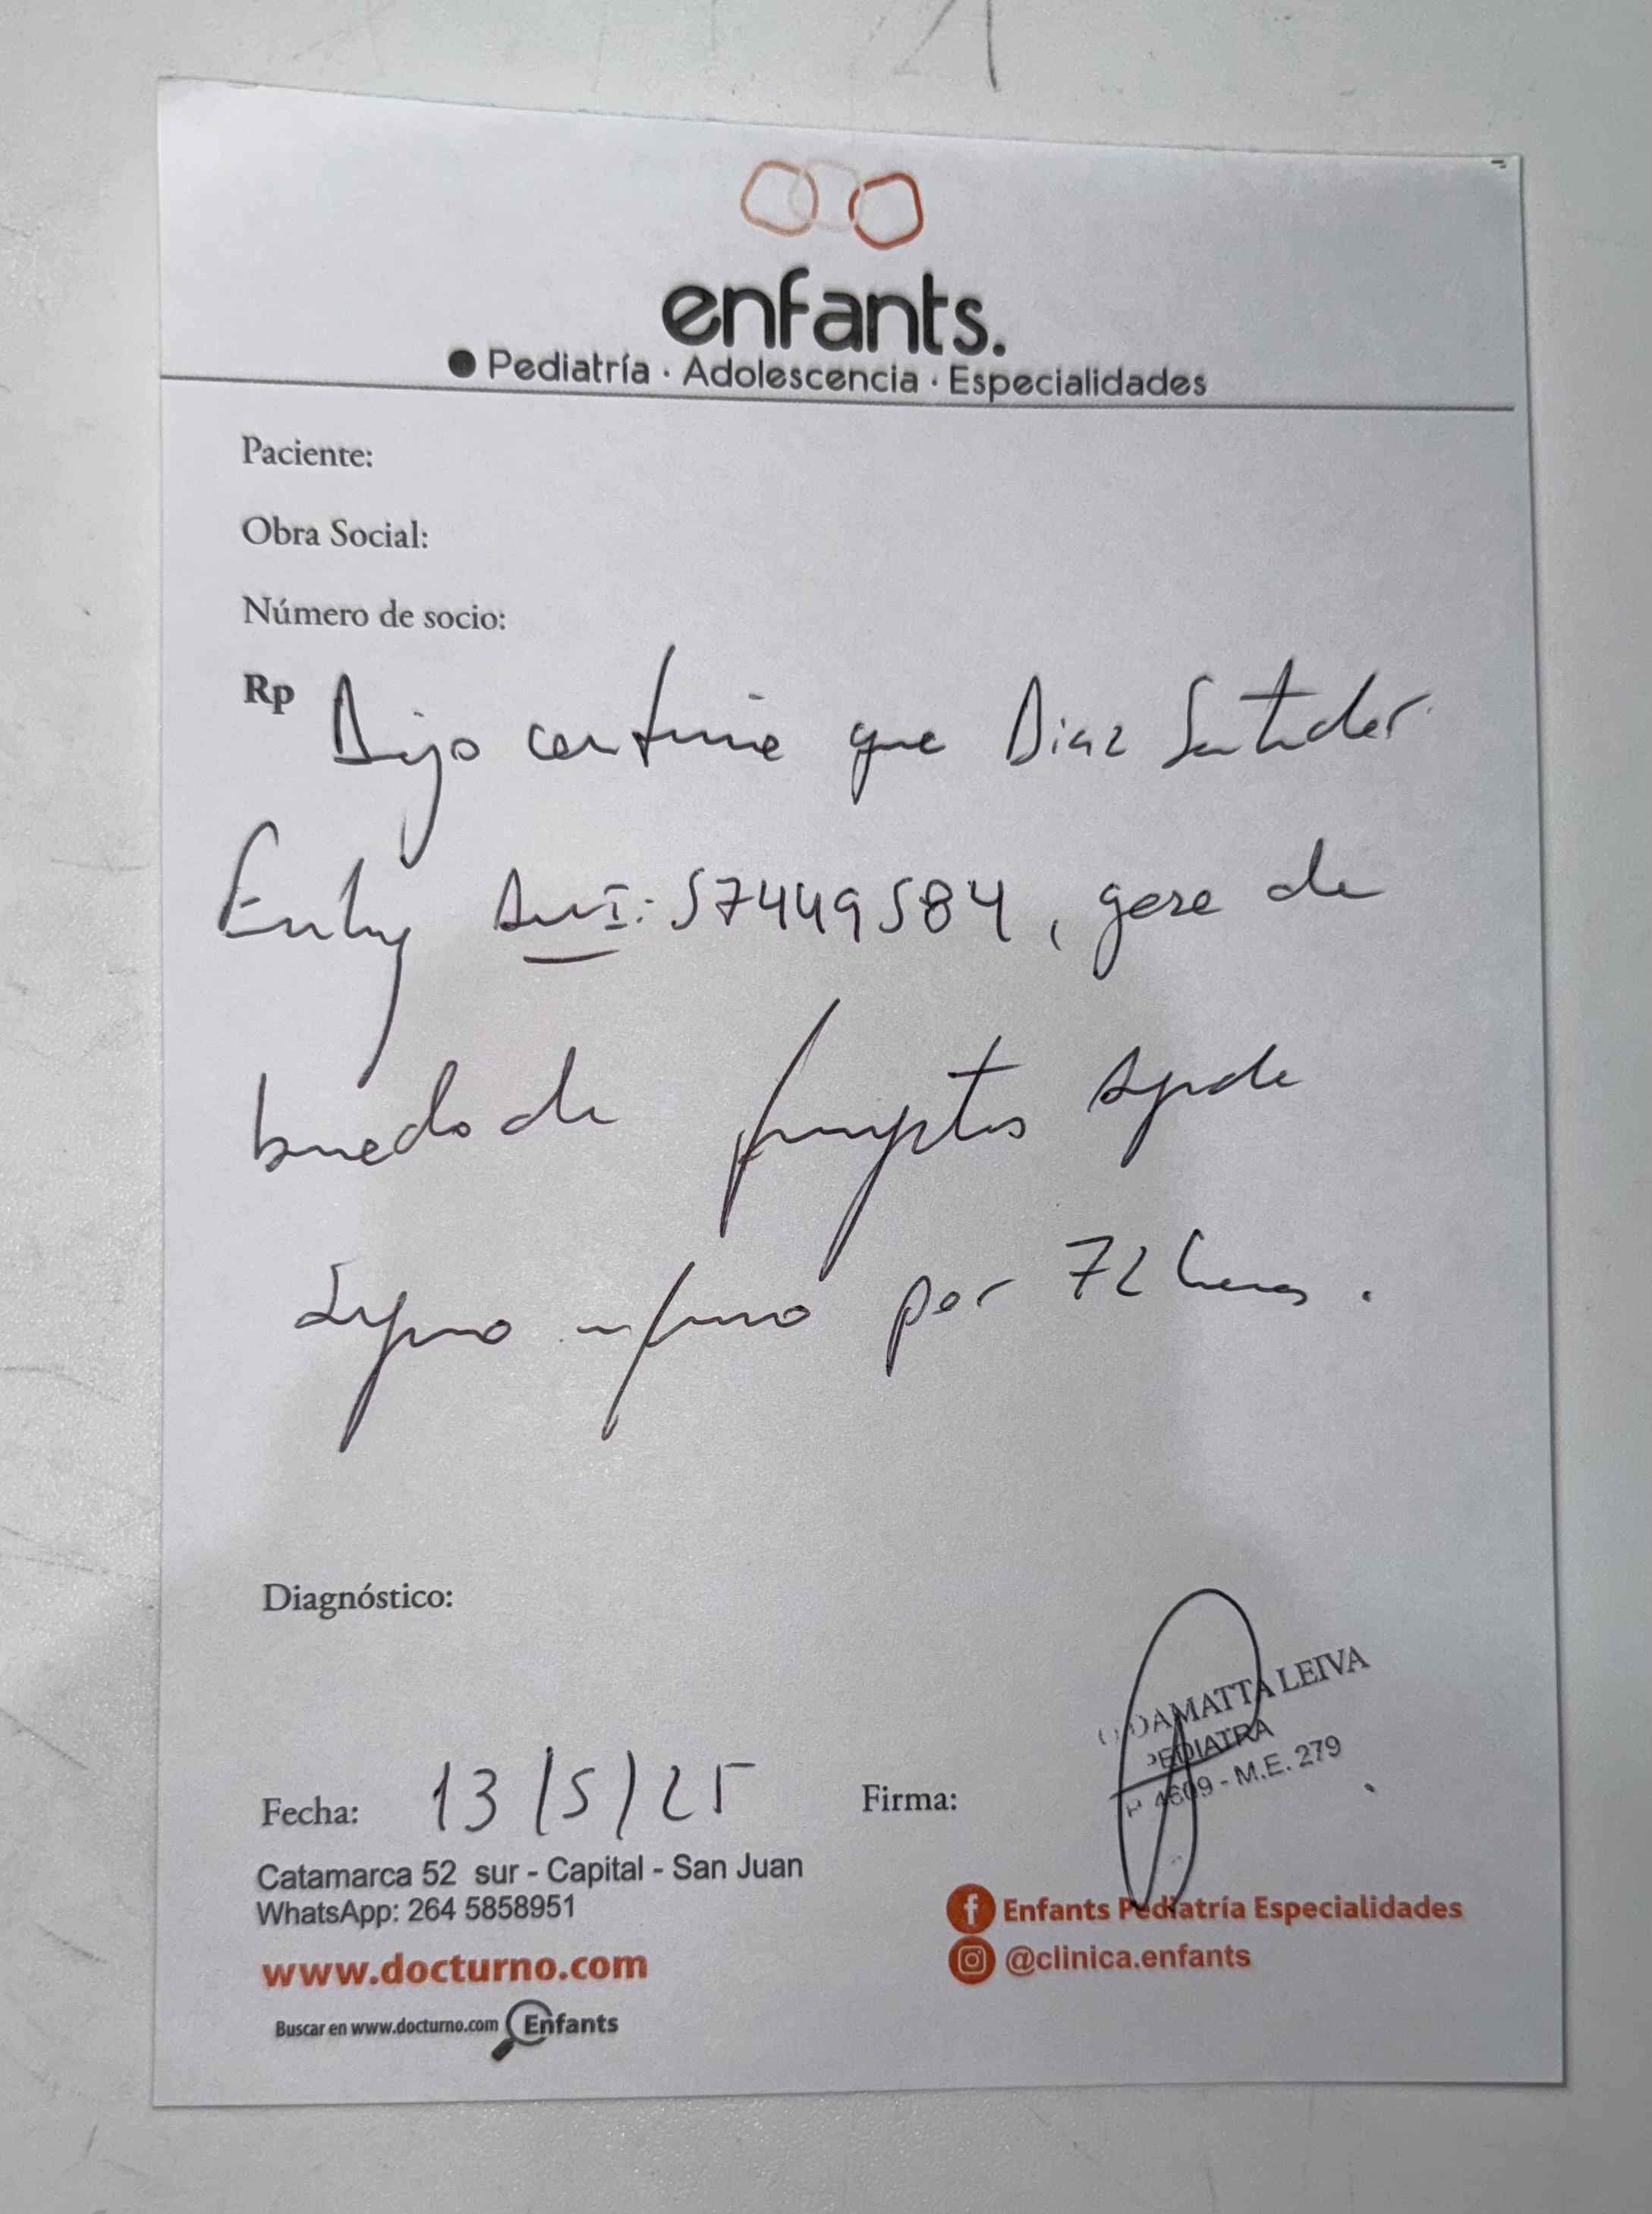 enfants.
Pediatría · Adolescencia · Especialidades
Paciente:
Obra Social:
Número de socio:
Rp Dejo constancia que Diaz
DNI: 57449584, goza de
buedo de
por 72 horas.
Diagnóstico:
DAMATTA LEIVA
PEDIATRA
4609 - M.E. 279
Fecha: 13/5/25 Firma:
Catamarca 52 sur - Capital - San Juan
WhatsApp: 264 5858951
www.docturno.com
Buscar en www.docturno.com Enfants
Enfants Pediatría Especialidades
@clinica.enfants